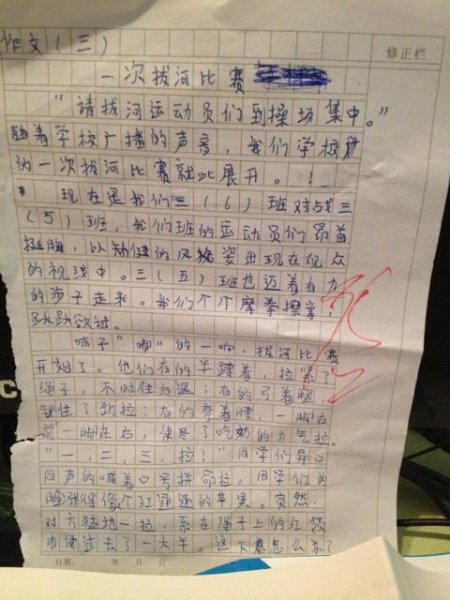 作文(三)
修正栏
一次拔河比赛
“请拔河运动员们到操场集中。”
随着学校广播的声音，我们学校
的一次拔河比赛就此展开。
现在是我们三(6)班对战三
(5)班，我们班的运动员们昂首
挺胸，以矫健的风姿出现在观众
的视线中。三(五)班也迈着有力
的步子走来。我们个个摩拳擦掌，
跃跃欲试。
哨子“嘟”的一响，拔河比赛
开始了。他们有的半蹲着，拉紧了
绳子，不时往后退；有的弓着腿
住了劲拉；有的弯着腰，一脚在
前一脚在后，使尽了吃奶的力气拉
“一，二，三，拉！”同学们异口
同声的喊着口号拼命拉。同学们的
脸张得像个红通通的苹果。突然，
对方猛地一拉，系在绳子上的红领
巾便过去了一大半。这下意怎么办
日期： 年 月 日